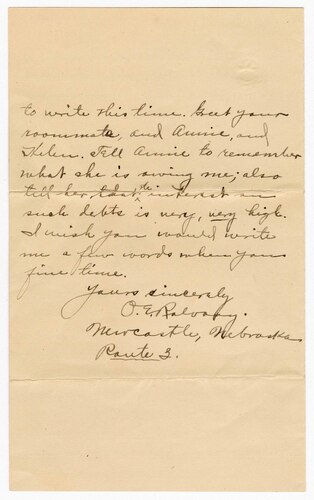 to write this time. Greet your
roommate, and Annie, and
Helen. Tell Annie to remember
what she is owing me; also
tell her that the interest on
such debts is very, very high.
I wish you would write
me a few words when you
fine time.
Yours sincerely
O. E.
Newcastle, Nebraska
Route 3.